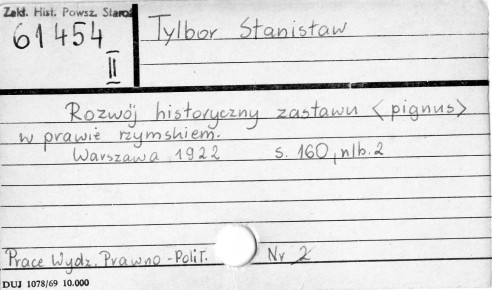 Zakł. Hist. Powsz. Staroż
61454
II
Tylbor Stanisław
Rozwój historyczny zastawu <pignus>
w prawie rzymskiem.
Warszawa 1922 s. 160, nlb. 2
Prace Wydz. Prawno-Polit. Nr 2
DUJ 1078/69 10.000